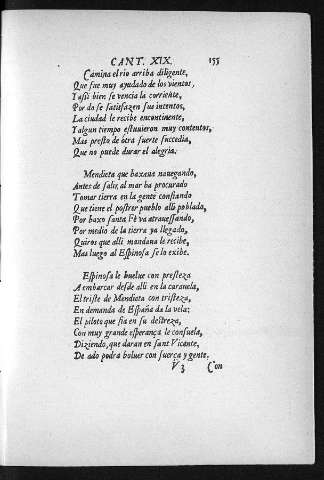 CANT. XIX. 155
Camina el rio arriba diligente,
Que fue muy ayudado de los vientos,
Y assi bien se vencia la corriente,
Por do se satisfazen sus intentos,
La ciudad le recibe encontinente,
Y algun tiempo estuuieron muy contentos,
Mas presto de otra suerte succedia,
Que no puede durar el alegria.
Mendieta que baxaua nauegando,
Antes de salir, al mar ha procurado
Tomar tierra en la gente confiando
Que tiene el postrer pueblo alli poblado,
Por baxo santa Fè va atrauessando,
Por medio de la tierra ya llegado,
Quiros que alli mandaua le recibe,
Mas luego al Espinosa se lo exibe.
Espinosa le buelue con presteza
A embarcar desde alli en la carauela,
El triste de Mendieta con tristeza,
En demanda de España da la vela;
El piloto que fia en su destreza,
Con muy grande esperança le consuela,
Diziendo, que daran en sant Vicente,
De ado podra boluer con fuerça y gente.
V 3 Con